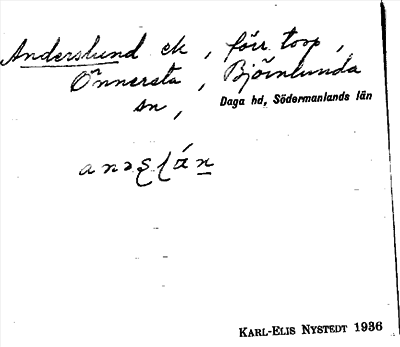 Anderslund ek, förr torp,
Önnersta, Björnlunda
sn, Daga hd, Södermanlands län
KARL-ELIS NYSTEDT 1936